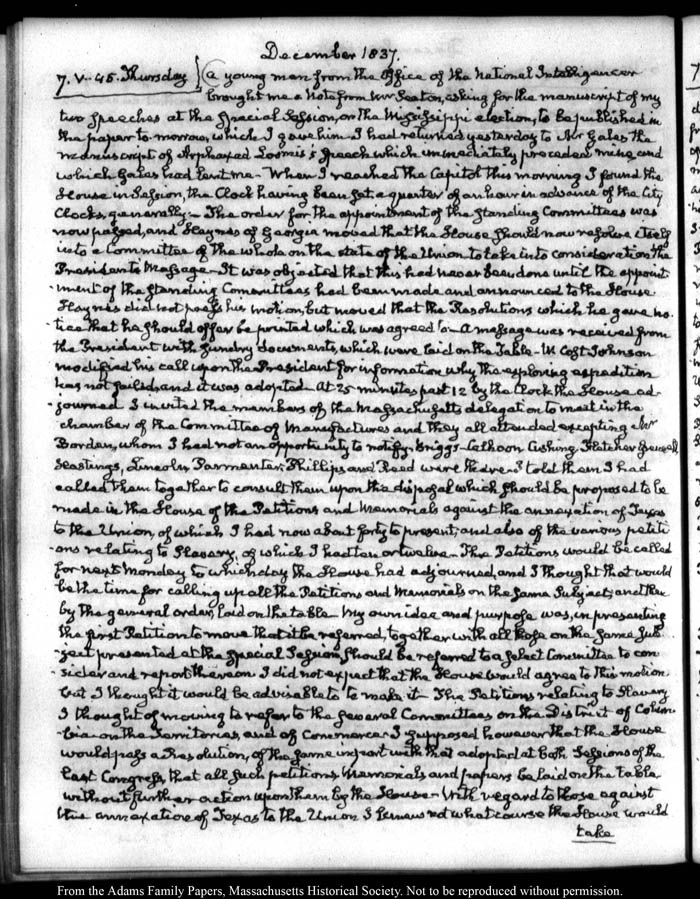 December 1837.
7. V.. 45. Thursday { A young man from the Office of the National Intelligencer
brought me a Note from Mr Seaton, asking for the manuscript of my
two speeches at the special Session, on the Mississippi election, to be published in
the paper to-morrow, which I gave him. I had returned yesterday to Mr Gales the
manuscript of Arphaxed Loomis's speech which immediately preceded mine and
which Gales had lent me - When I reached the Capitol this morning I found the
House in Session, the Clock having been set a quarter of an hour in advance of the City
Clocks, generally - The order for the appointment of the Standing Committees was
now passed, and Haynes of Georgia moved that the House should now resolve itself
into a Committee of the whole on the state of the Union to take into consideration the
Presidents Message - It was objected that this had never been done until the appoint-
-ment of the standing Committees had been made and announced to the House
Haynes did not press his motion, but moved that the Resolutions which he gave no-
tice that he should offer be printed which was agreed to - A message was received from
the President with sundry documents, which were laid on the Table - W. Cost Johnson
modified his call upon the President for information why the exploring expedition
has not sailed, and it was adopted. At 25 minutes past 12 by the Clock the House ad-
-journed I invited the members of the Massachusetts delegation to meet in the
chamber of the Committee of Manufactures and they all attended excepting Mr
Borden, whom I had not an opportunity to notify. Briggs - Calhoon Cushing Fletcher Grennell
Hastings, Lincoln Parmenter, Phillips and Reed were there - I told them I had
called them together to consult them upon the disposal which should be proposed to be
made in the House of the Petitions and Memorials against the annexation of Texas
to the Union, of which I had now about forty to present; and also of the various petiti-
-ons relating to Slavery, of which I had ten or twelve - The Petitions would be called
for next Monday to which day the House had adjourned, and I thought that would
be the time for calling up all the Petitions and Memorials on the same subject; and then
by the general order, laid on the table. My own idea and purpose was, in presenting
the first Petition to move that it be referred, together with all those on the same sub-
-ject presented at the special Session, should be referred to a select Committee to con-
-sider and report thereon I did not expect that the House would agree to this motion
but I thought it would be advisable to make it - The Petitions relating to Slavery
I thought of moving to refer to the several Committees on the District of Colum-
-bia - on the Territories, and of Commerce - I supposed however that the House
would pass a Resolution, of the same import with that adopted at both Sessions of the
last Congress, that all such petitions, Memorials and papers be laid on the table
without further action upon them by the House - With regard to those against
this annexation of Texas to the Union I knew not what course the House would
take
From the Adams Family Papers, Massachusetts Historical Society. Not to be reproduced without permission.